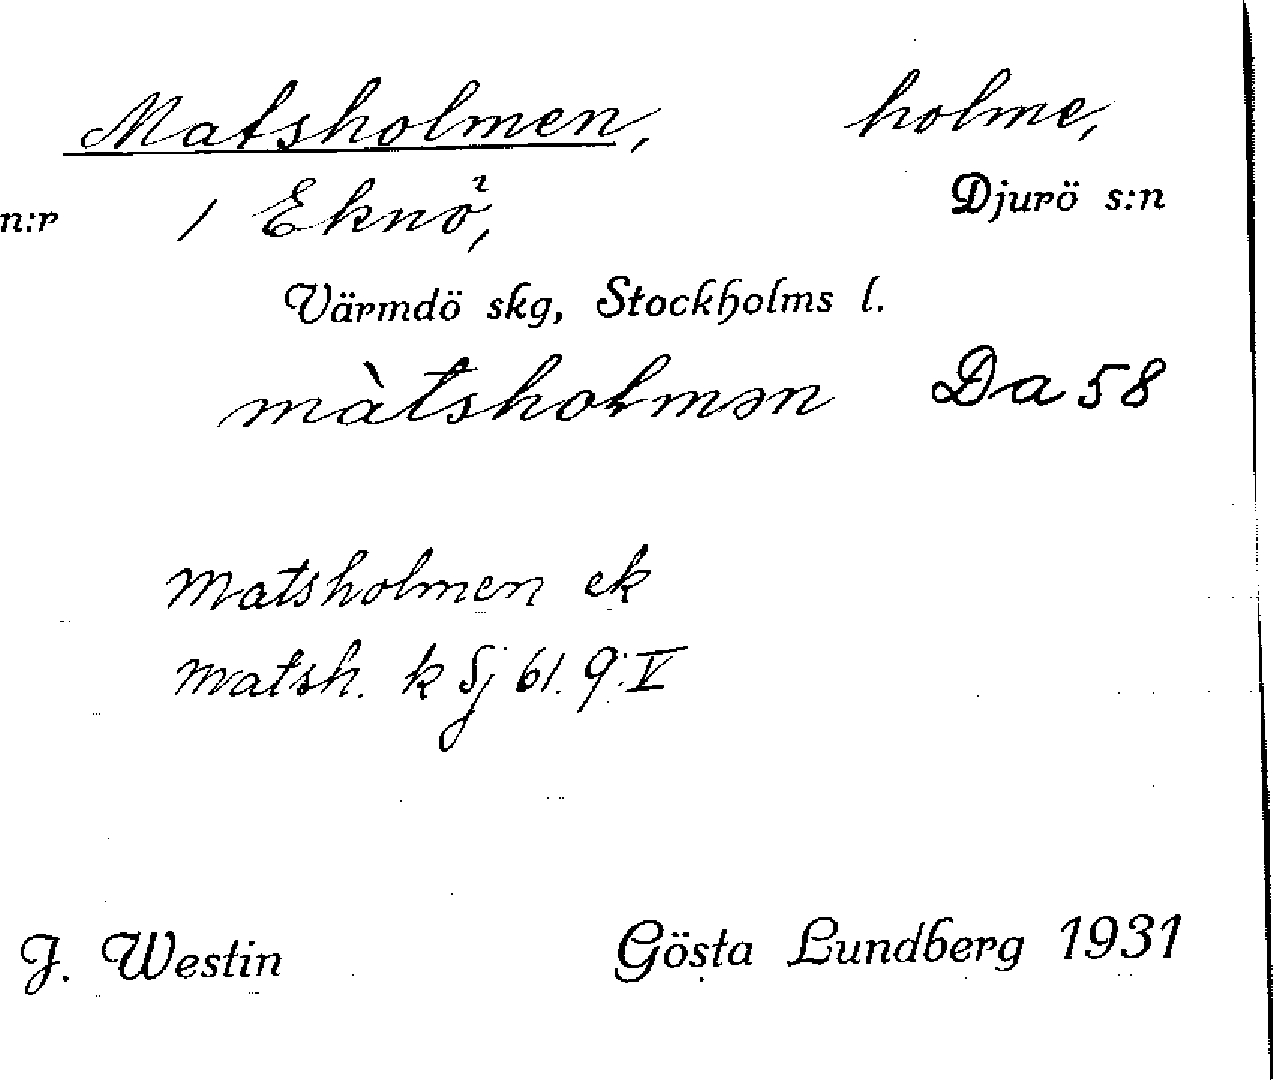 Matsholmen, holme,
n:r 1 Eknö², Djurö s:n
Värmdö skg, Stockholms l.
màtsholmən Da 58
Matsholmen ek
Matsh. k Sj 61. 9. V
J. Westin Gösta Lundberg 1931